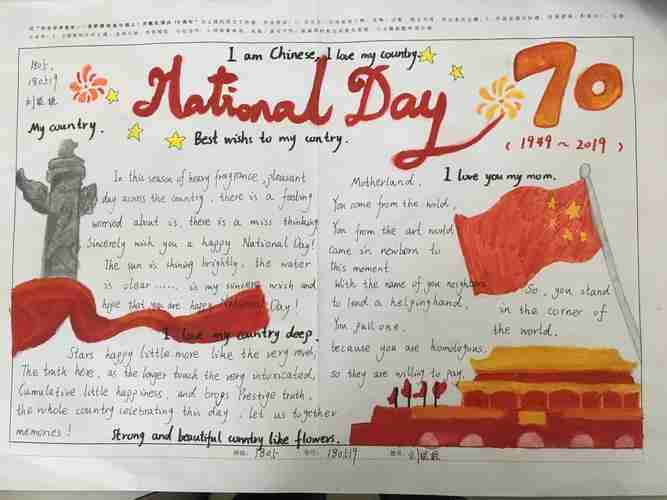 I am Chinese, I love my country.
1805.
180519
National Day
70
(1949~2019)
My country.
Best wishes to my contry.
In this season of heavy fragrance, pleasant
day across the country, there is a feeling
worried about is, there is a miss thinking
Sincerely wish you a happy National Day!
The sun is shining brightly, the water
is clear...... is my sincere wish and
hope that you are happy National Day!
I love my country deep.
Stars happy little more like the very moved,
The truth here, as the longer touch the very intoxicated,
Cumulative little happiness, and brogs Prestige truth,
the whole country celebrating this day, let us together
memories!
Strong and beautiful cuntry like flowers.
I love you my mom.
Motherland,
You come from the world,
You from the art world
came in newborn to
this moment
With the name of you neighbors
to lend a helping hand,
You pull one,
because you are homologous,
so they are willing to pay,
So, you stand
in the corner of
the world.
1805
180519